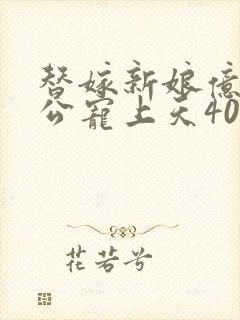 替嫁新娘亿
公宠上天40
花若兮